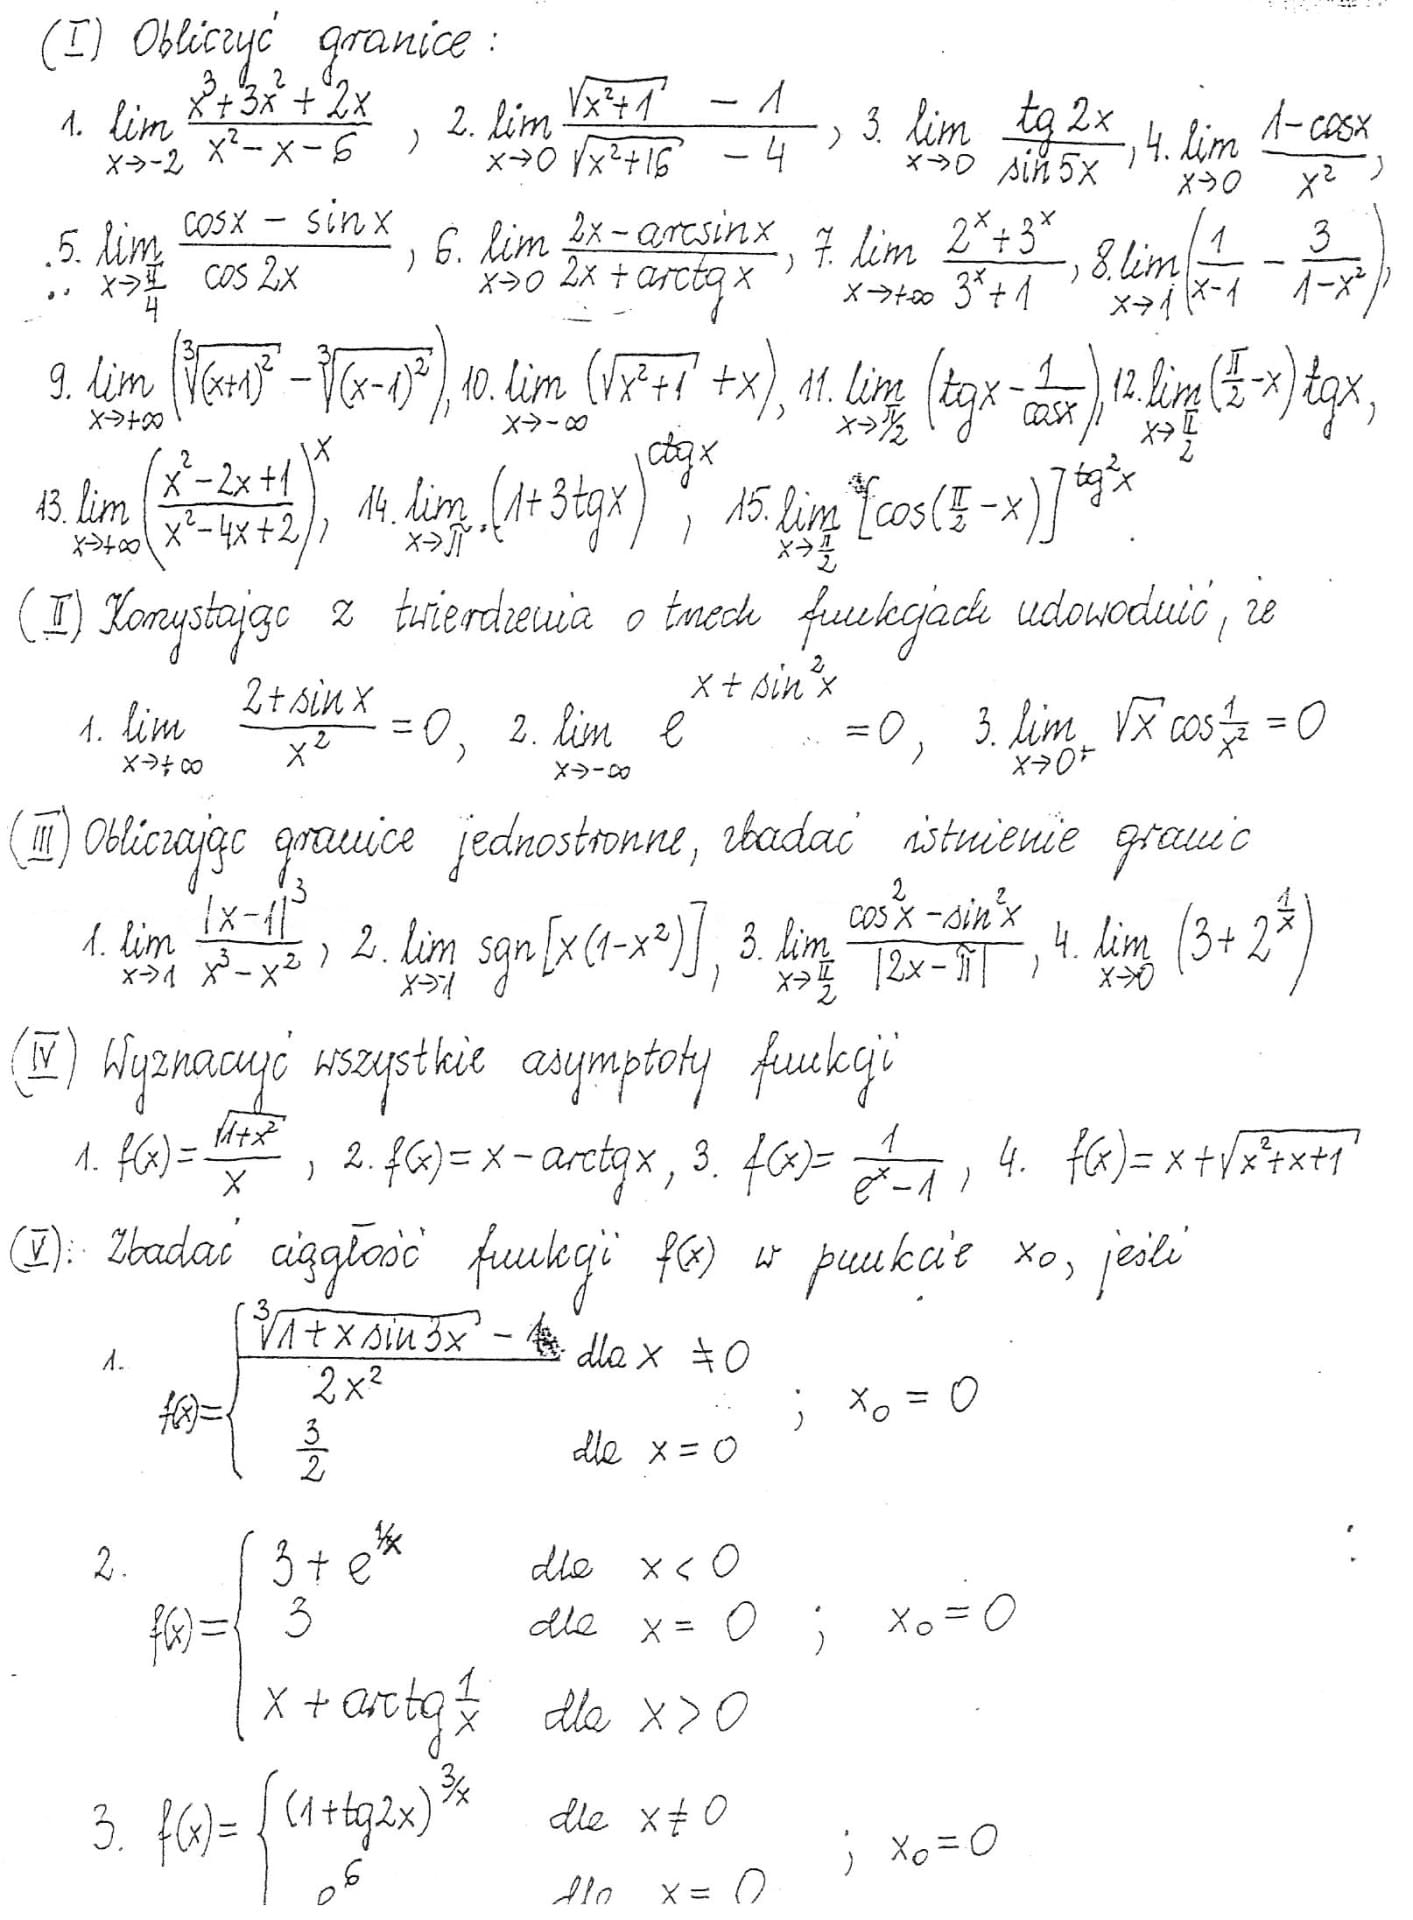 (I) Obliczyć granice:
1. lim_{x→-2} (x³+3x²+2x)/(x²-x-6), 2. lim_{x→0} (√(x²+1) - 1)/(√(x²+16) - 4), 3. lim_{x→0} (tg 2x)/(sin 5x), 4. lim_{x→0} (1-cosx)/x²,
5. lim_{x→π/4} (cosx - sinx)/(cos 2x), 6. lim_{x→0} (2x-arcsinx)/(2x+arctgx), 7. lim_{x→+∞} (2^x+3^x)/(3^x+1), 8. lim_{x→1} (1/(x-1) - 3/(1-x²)),
9. lim_{x→+∞} (∛((x+1)²) - ∛((x-1)²)), 10. lim_{x→-∞} (√(x²+1) + x), 11. lim_{x→π/2} (tgx - 1/cosx), 12. lim_{x→π/2} (π/2 - x) tgx,
13. lim_{x→+∞} ((x²-2x+1)/(x²-4x+2))^x, 14. lim_{x→π} (1+3tgx)^{ctgx}, 15. lim_{x→π/2} [cos(π/2 - x)]^{tg²x}.
(II) Korzystając z twierdzenia o trzech funkcjach udowodnić, że
1. lim_{x→+∞} (2+sinx)/x² = 0, 2. lim_{x→-∞} e^{x+sin²x} = 0, 3. lim_{x→0+} √x cos 1/x² = 0
(III) Obliczając granice jednostronne, zbadać istnienie granic
1. lim_{x→1} |x-1|³/(x³-x²), 2. lim_{x→-1} sgn[x(1-x²)], 3. lim_{x→π/2} (cos²x - sin²x)/|2x-π|, 4. lim_{x→0} (3+2^{1/x})
(IV) Wyznaczyć wszystkie asymptoty funkcji
1. f(x) = √(1+x²)/x, 2. f(x) = x - arctgx, 3. f(x) = 1/(e^x-1), 4. f(x) = x + √(x²+x+1)
(V): Zbadać ciągłość funkcji f(x) w punkcie x₀, jeśli
1. f(x) = { (∛(1+x sin 3x) - 1)/(2x²) dla x ≠ 0
3/2 dla x = 0 ; x₀ = 0
2. f(x) = { 3 + e^{1/x} dla x < 0
3 dla x = 0 ; x₀ = 0
x + arctg 1/x dla x > 0
3. f(x) = { (1+tg2x)^{3/x} dla x ≠ 0 ; x₀ = 0
e^6 dla x = 0